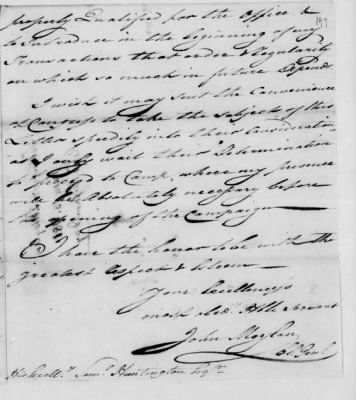 197
properly Qualified for the Office &
to Introduce in the beginning of my
Transactions that order & regularity
on which so much in future Depends
I wish it may suit the Convenience
of Congress to take the subject of this
Letter speedily into their Consideration
as I only wait their Determination
to proceed to Camp, where my presence
will be Absolutely necessary before
the opening of the Campaign
I have the honor to be with the
greatest respect & Esteem
Your Excellency's
most obed.t Hble Servant
John Moylan
Cl. Genl.
His Excell.y Saml. Huntington Esqr.